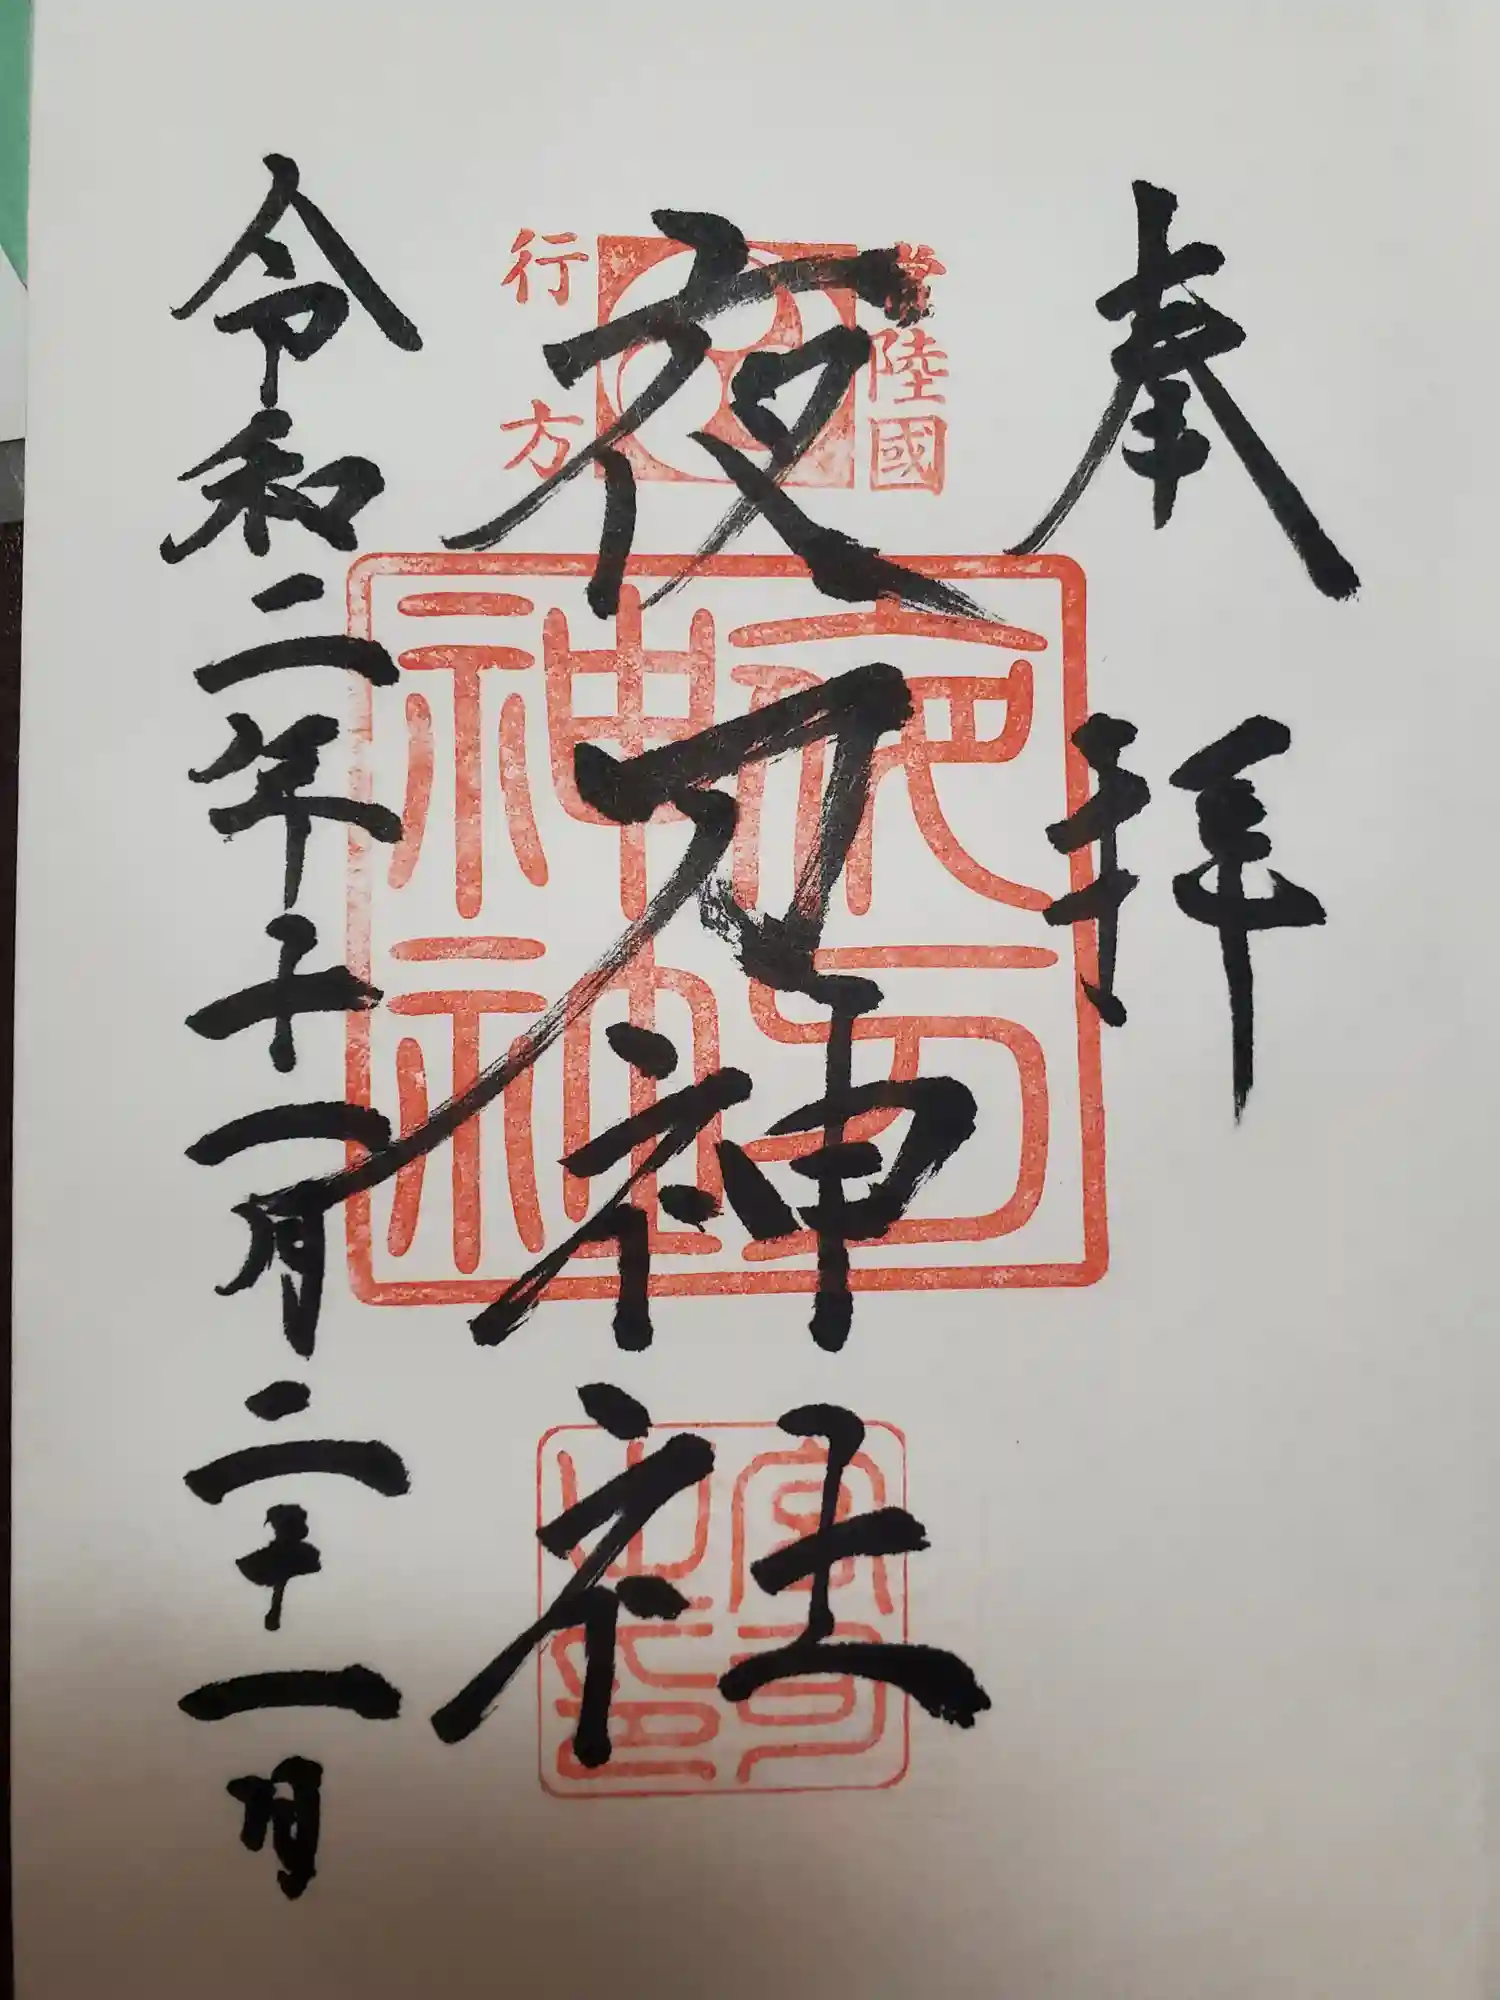 奉拝
常陸國
行方
夜刀神社
宮司之印
令和二年十一月二十一日